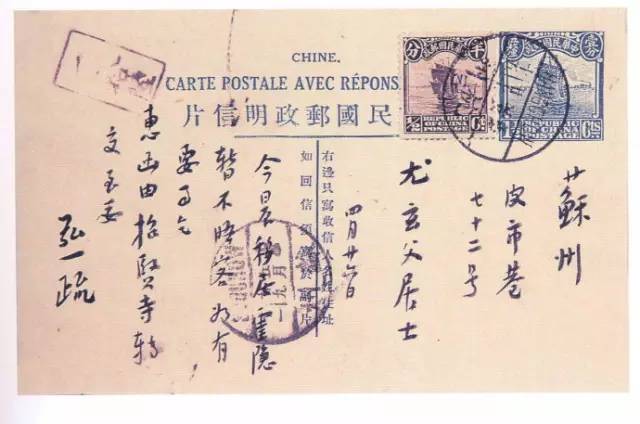 CHINE.
CARTE POSTALE AVEC RÉPONS
民國郵政明信片
半分
REPUBLIC
OF CHINA
POSTAGE
1/2 Cts
蘇州
皮市巷
七十二号
尤玄父居士
四月廿六日
右邊只寫收信人
如回信須寫於副片
今日移居靈隱
暫不晤客 如有
要事乞
惠函由招賢寺轉
交至委
弘一疏